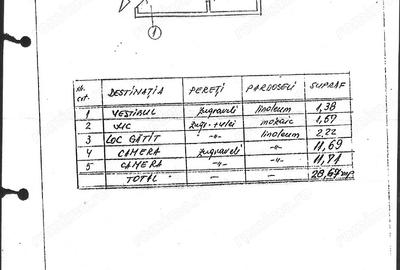 1
Nr. crt. DESTINAȚIA PEREȚI PARDOSELI SUPRAF
1 VESTIBUL zugraveli linoleum 1,38
2 WC zugr.+ulei mozaic 1,67
3 LOC GATIT -"- linoleum 2,22
4 CAMERA zugraveli -"- 11,69
5 CAMERA -"- -"- 11,71
TOTAL — — 28,67 mp